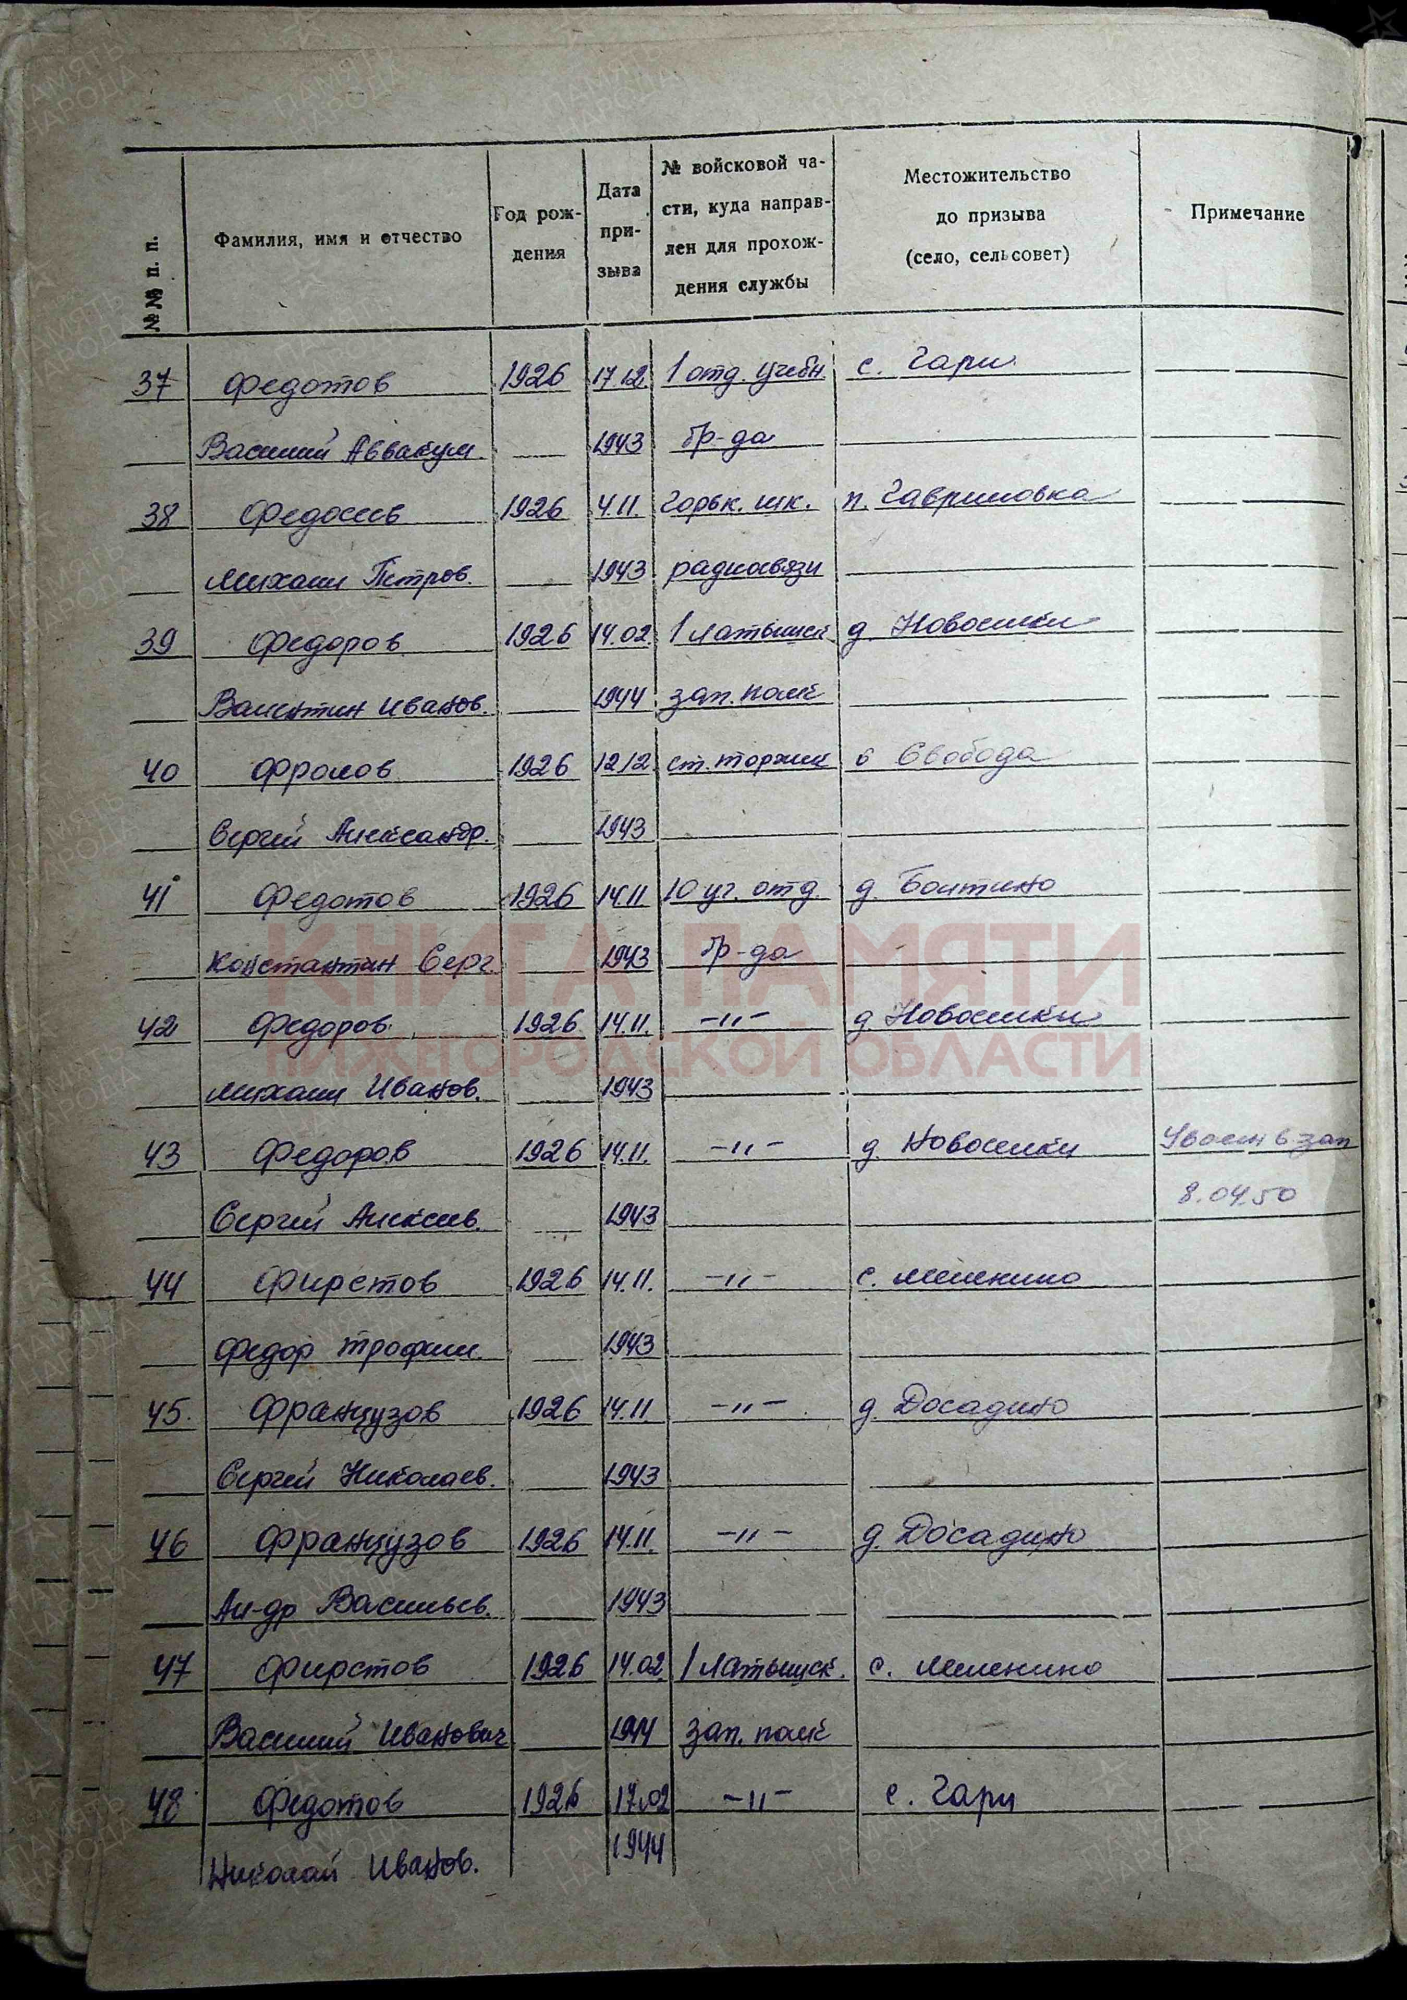 №№ п. п. Фамилия, имя и отчество Год рож- дения Дата при- зыва № войсковой ча- сти, куда направ- лен для прохож- дения службы Местожительство до призыва (село, сельсовет) Примечание
37 Федотов 1926 17.12 1 отд. учебн. с. Гари
Василий Аввакум. 1943 бр-да
38 Федосеев 1926 4.11. Горьк. шк. п. Гавриловка
Михаил Петров. 1943 радиосвязи
39 Федоров 1926 14.02. 1 Латышск. д. Новоселки
Валентин Иванов. 1944 зап. полк
40 Фролов 1926 12/2 ст. торжик Свобода
Сергей Александр. 1943
41 Федотов 1926 14.11 10 уч. отд. д. Болтино
Константин Серг. 1943 бр-да
КНИГА ПАМЯТИ
42 Федоров 1926 14.11. -"- д. Новоселки
НИЖЕГОРОДСКОЙ ОБЛАСТИ
Михаил Иванов. 1943
43 Федоров 1926 14.11. -"- д. Новоселки Уволен в зап
Сергей Алексеев. 1943 8.04.50
44 Фирстов 1926 14.11. -"- с. Меленино
Федор Трофим. 1943
45. Французов 1926 14.11 -"- д. Досадино
Сергей Николаев. 1943
46 Французов 1926 14.11. -"- д. Досадино
Ал-др Васильев. 1943
47 Фирстов 1926 14.02 1 Латышск. с. Меленино
Василий Иванович 1944 зап. полк
48 Федотов 1926 17.02 -"- с. Гари
Николай Иванов. 1944